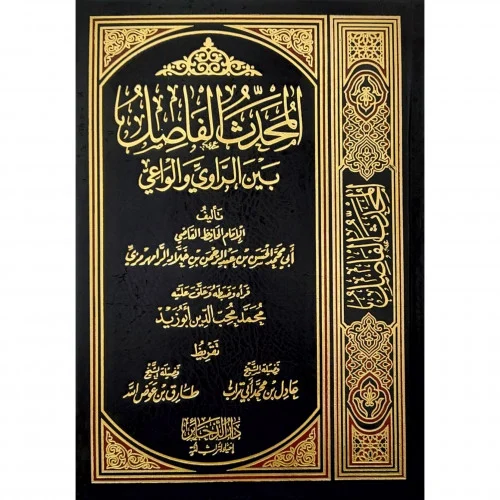 المحدث الفاصل
بين الراوي والواعي
تأليف
الإمام الحافظ القاضي
أبي محمد الحسن بن عبد الرحمن بن خلاد الرامهرمزي
قرأه وضبطه وعلق عليه
محمد محب الدين أبو زيد
تقريظ
فضيلة الشيخ
عادل بن محمد أبي تراب
فضيلة الشيخ
طارق بن عوض الله
دار الذخائر
المحدث الفاصل